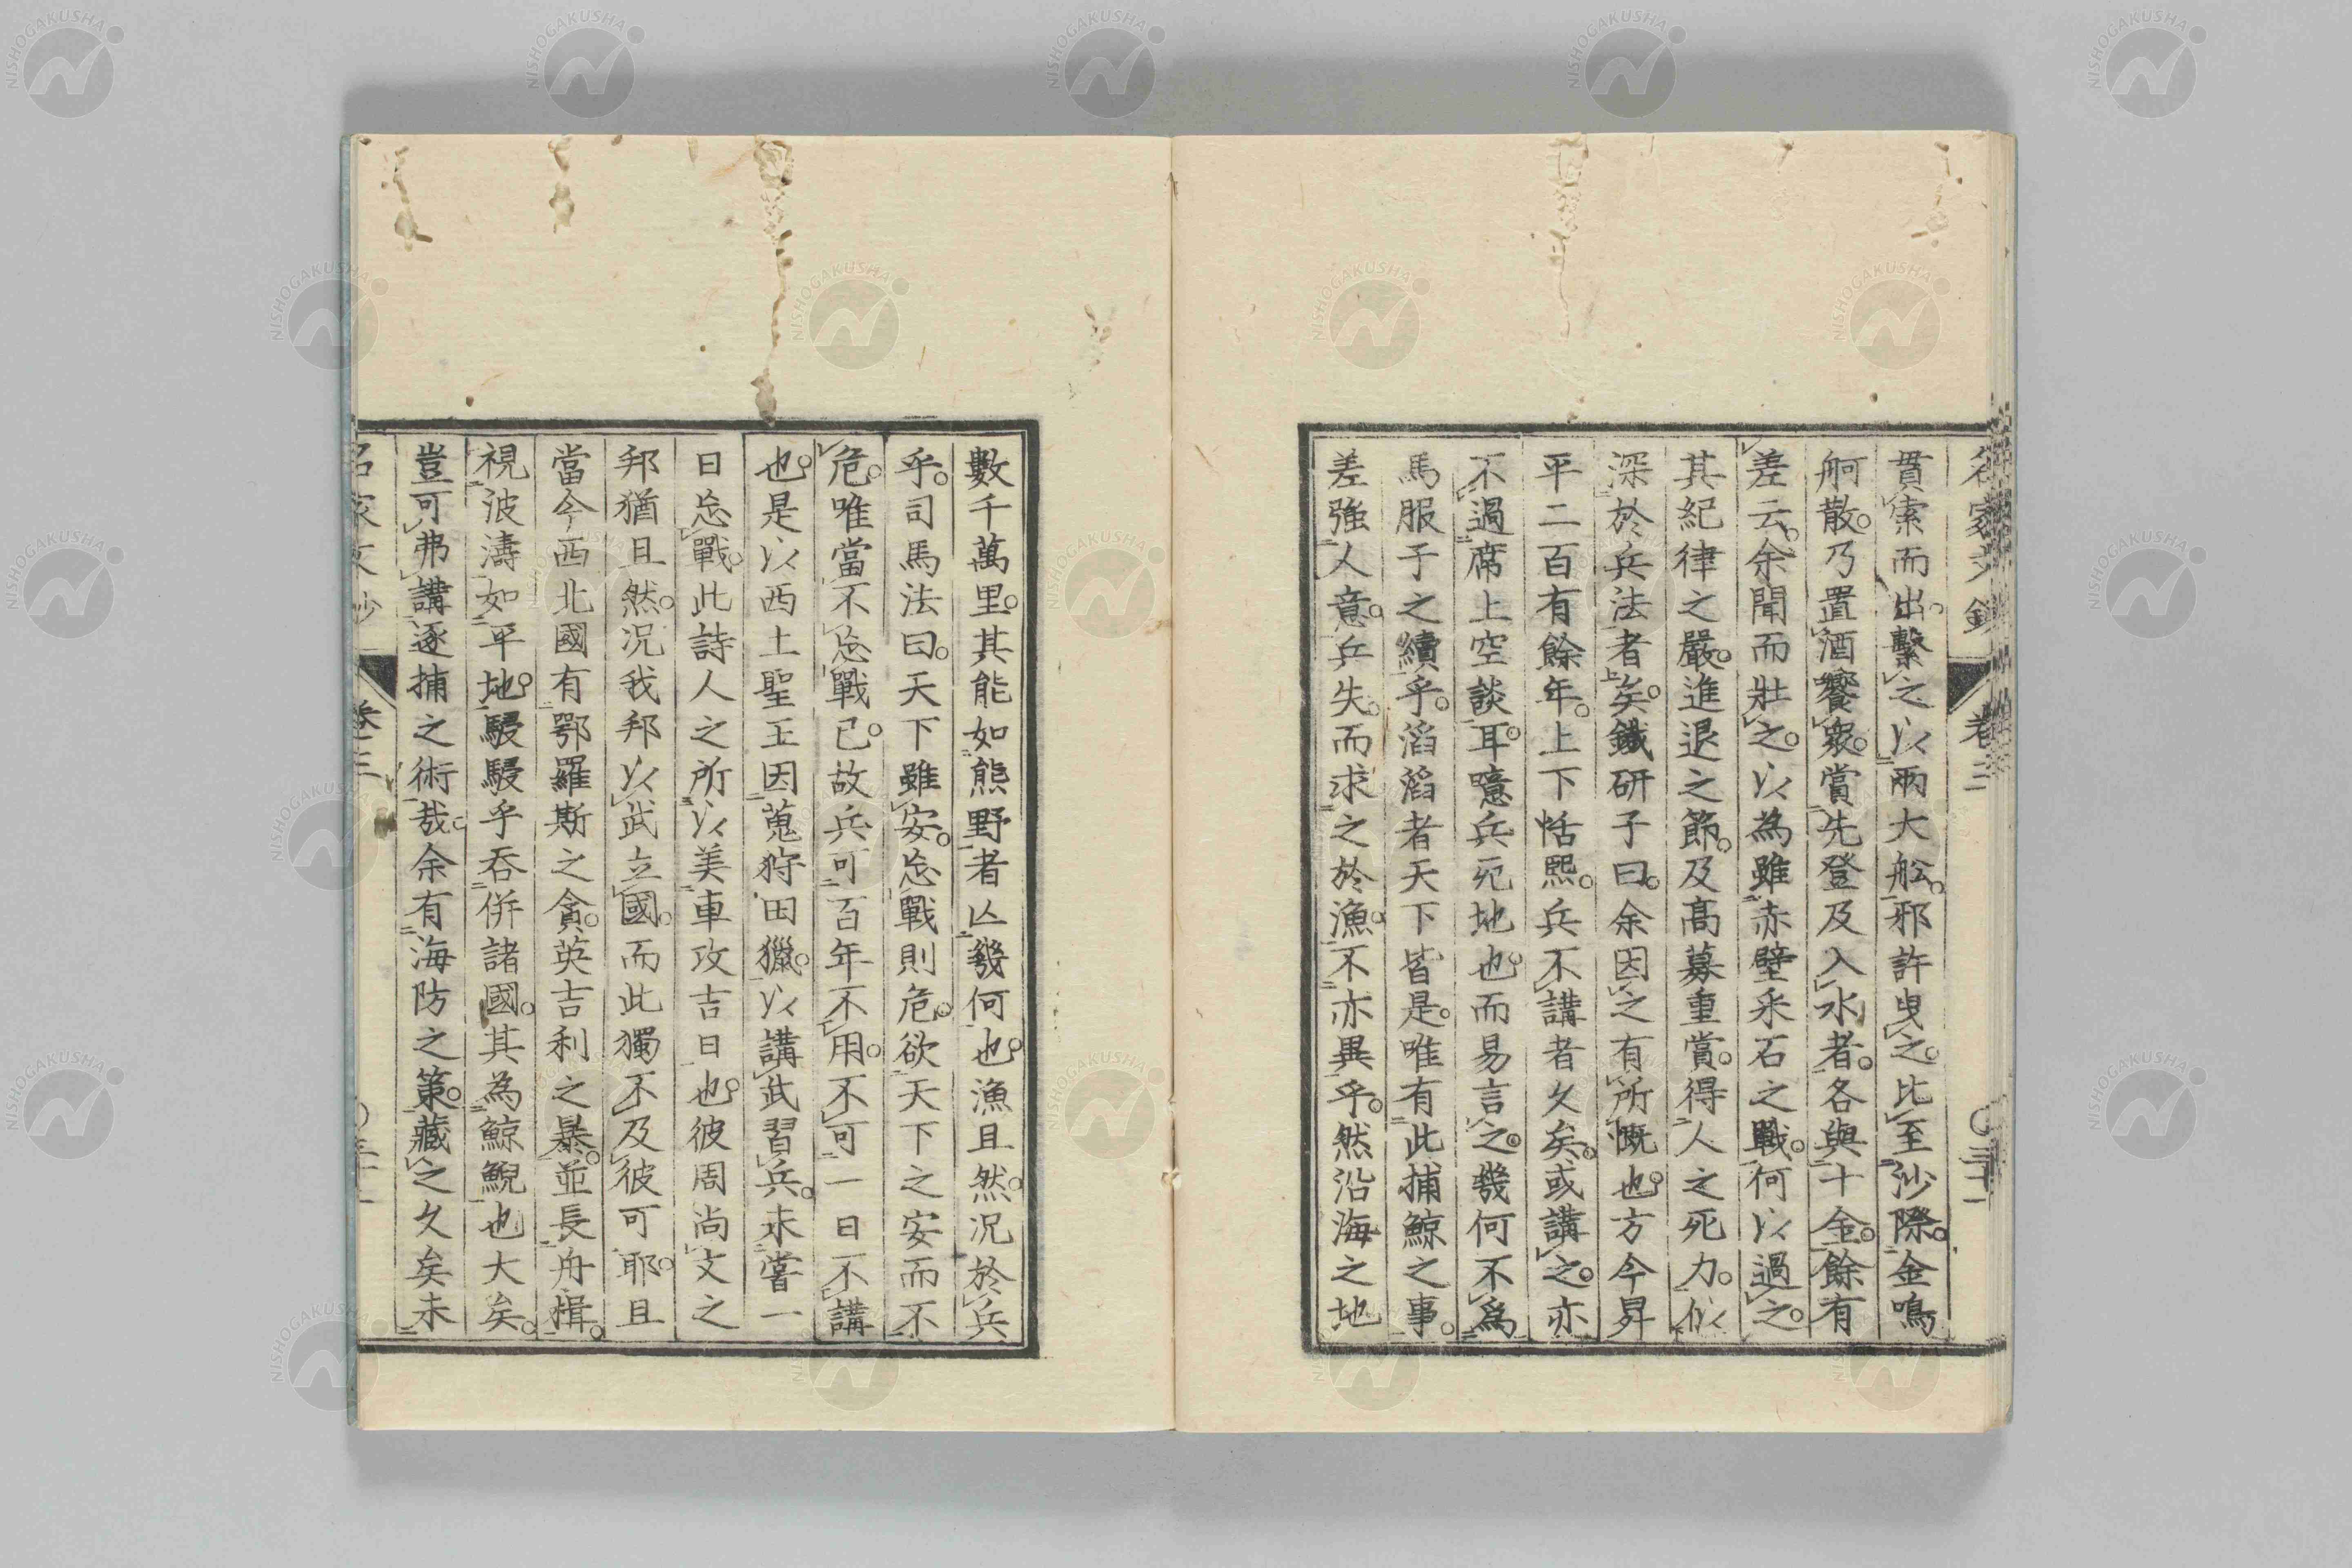 名家文鈔 卷三 〇三十一
貫索而出。繫之以兩大舩。邪許曳之。比至沙際。金鳴
舸散。乃置酒饗衆。賞先登及入水者。各與十金。餘有
差云。余聞而壯之。以為雖赤壁釆石之戰。何以過之。
其紀律之嚴。進退之節。及髙募重賞。得人之死力。似
深於兵法者矣。鐵研子曰。余因之有所慨也。方今昇
平二百有餘年。上下恬熙。兵不講者久矣。或講之。亦
不過席上空談耳。噫兵死地也。而易言之。幾何不爲
馬服子之續乎。滔滔者天下皆是。唯有此捕鯨之事。
差強人意。兵失。而求之於漁。不亦異乎。然沿海之地
數千萬里。其能如熊野者亾幾何也。漁且然。況於兵
乎。司馬法曰。天下雖安。忘戰則危。欲天下之安而不
危。唯當不忘戰已。故兵可百年不用。不可一日不講
也。是以西土聖王因蒐狩田獵。以講武習兵。未嘗一
日忘戰。此詩人之所以美車攻吉日也。彼周尚文之
邦猶且然。況我邦以武立國。而此獨不及彼可耶。且
當今西北國有鄂羅斯之貪。英吉利之暴。並長舟楫。
視波濤如平地。駸駸乎吞併諸國。其為鯨鯢也大矣。
豈可弗講逐捕之術哉。余有海防之策。藏之久矣。未
名家文鈔 卷三
NISHOGAKUSHA